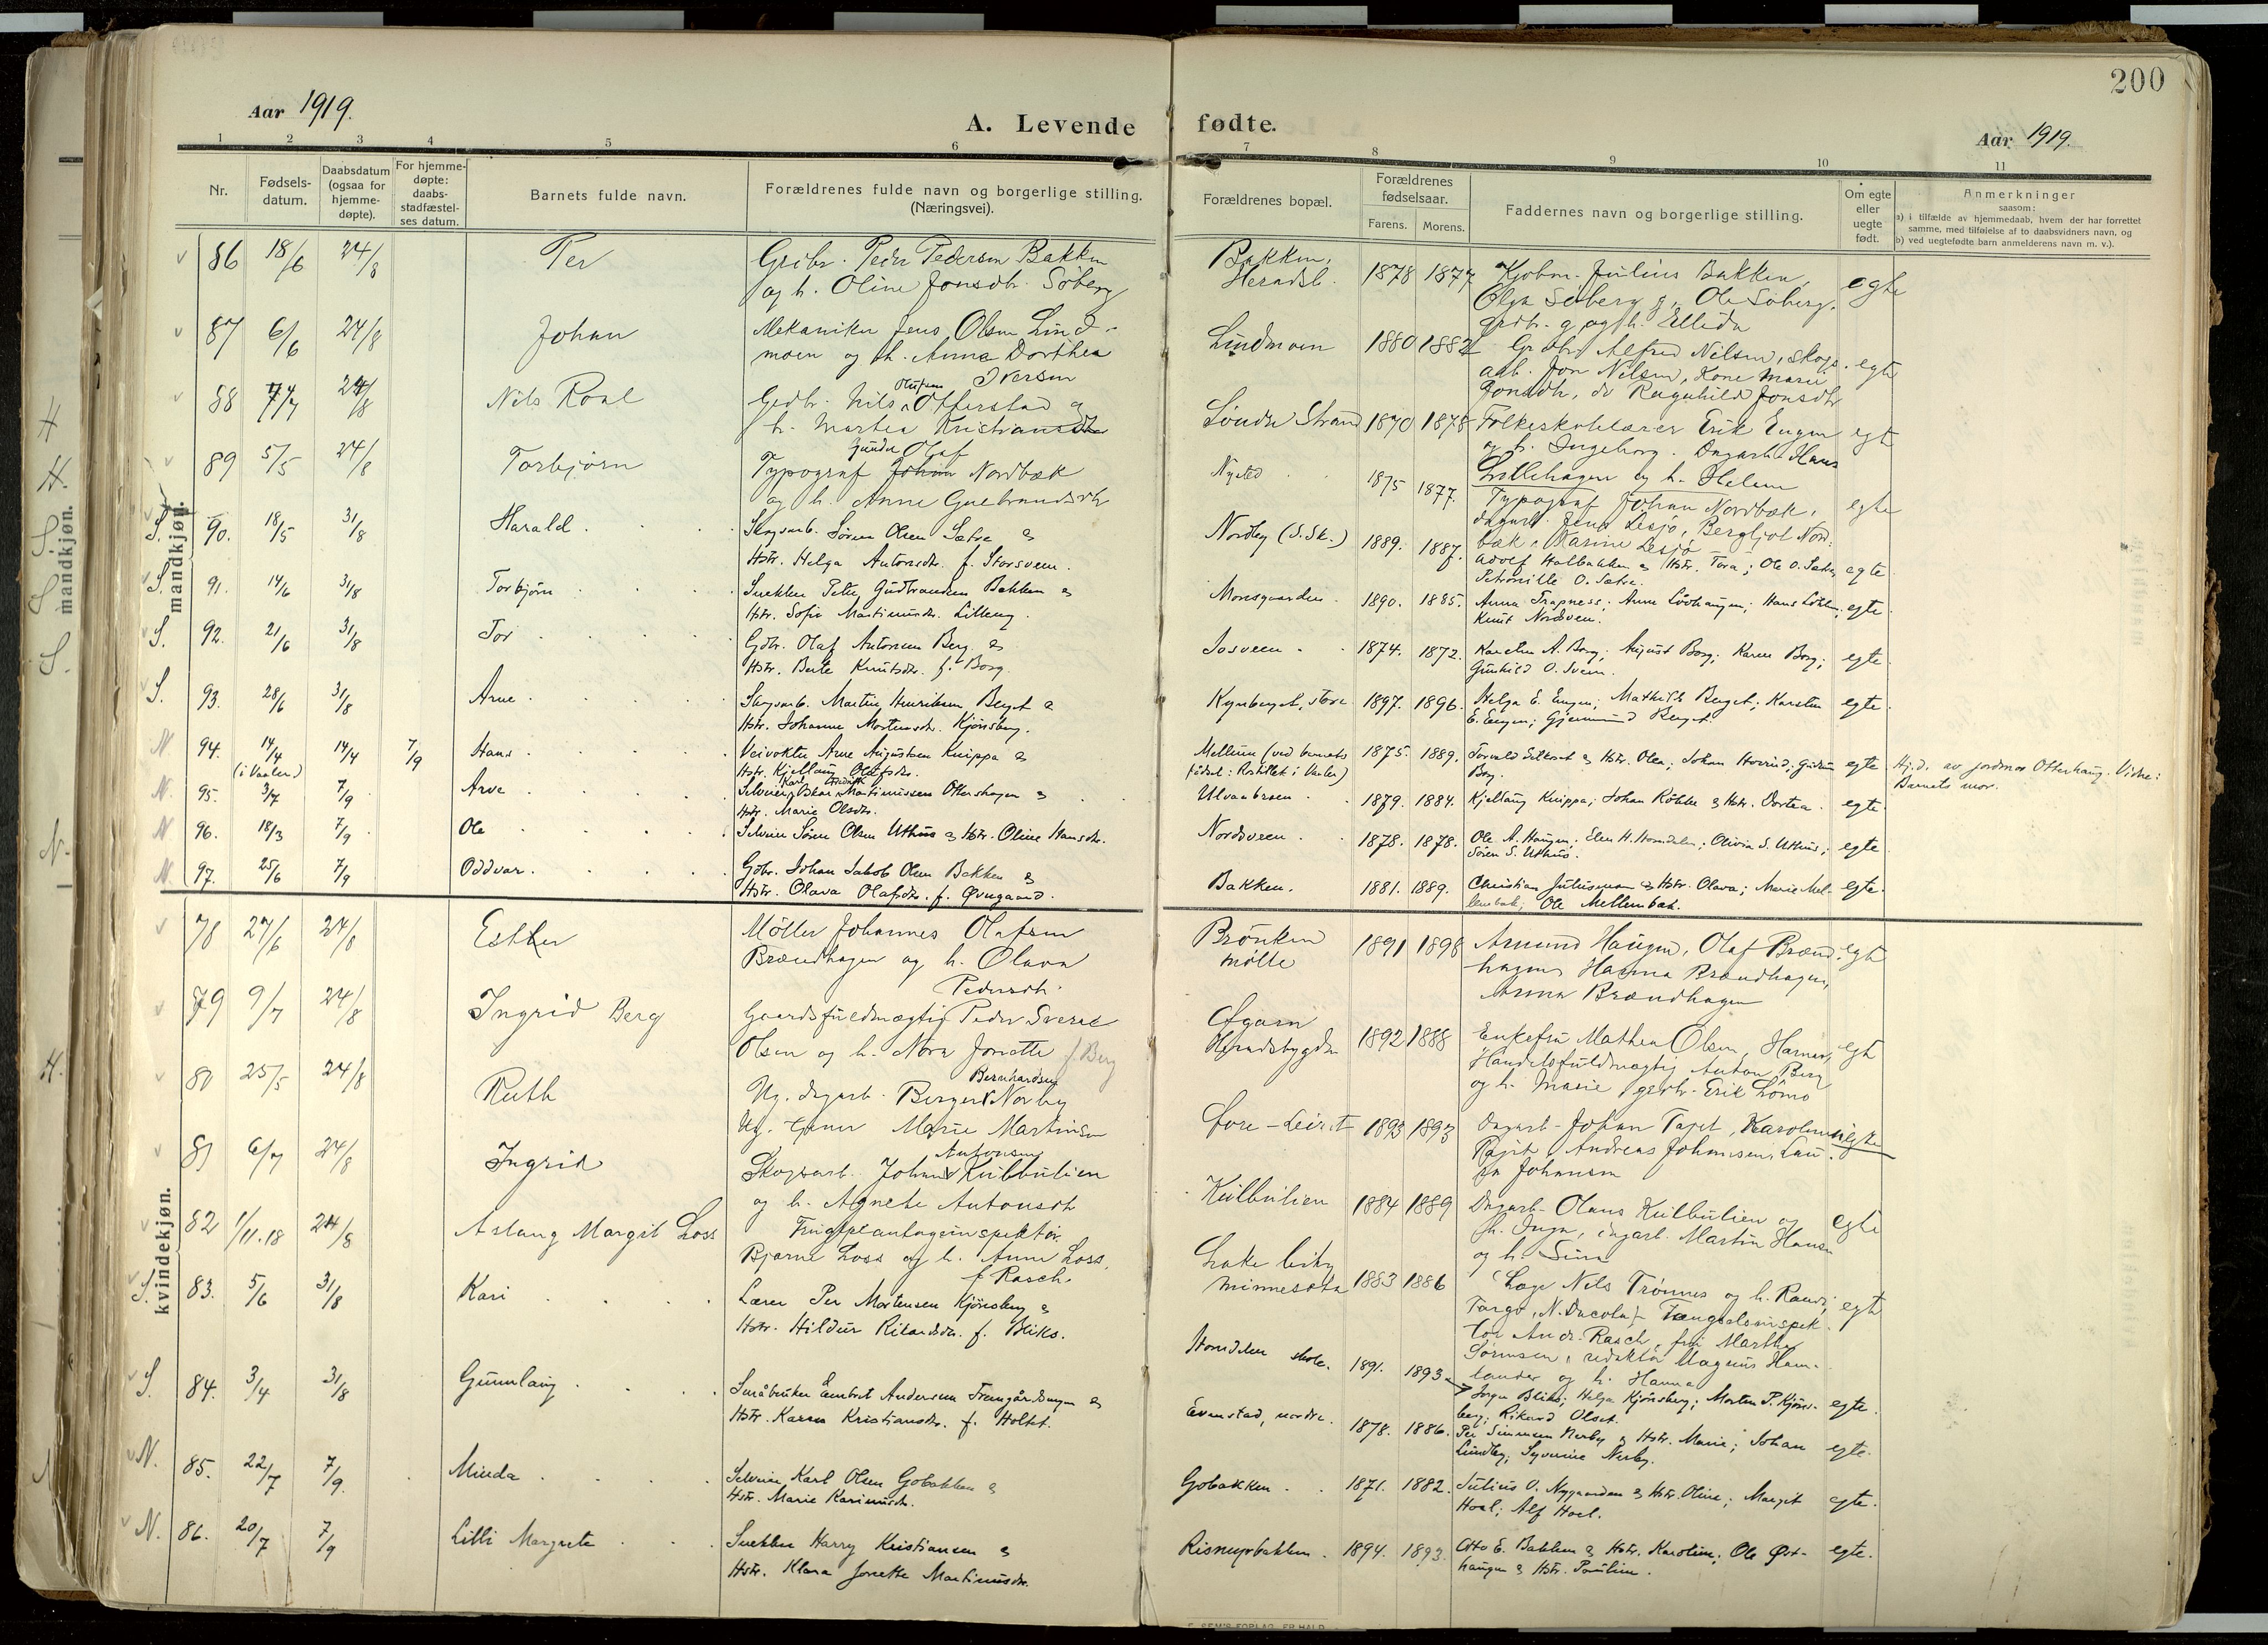 200
Aar 1919.
A. Levende fødte.
Aar 1919.
1 2 3 4 5 6 7 8 9 10 11
Nr.
Fødsels-
datum.
Daabsdatum
(ogsaa for
hjemme-
døpte).
For hjemme-
døpte:
daabs-
stadfæstel-
ses datum.
Barnets fulde navn.
Forældrenes fulde navn og borgerlige stilling.
(Næringsvei).
Forældrenes bopæl.
Forældrenes
fødselsaar.
Farens. Morens.
Faddernes navn og borgerlige stilling.
Om egte
eller
uegte
født.
Anmerkninger
saasom:
a) i tilfælde av hjemmedaab, hvem der har forrettet
samme, med tilføielse af to daabsvidners navn, og
b) ved uegtefødte barn anmelderens navn m. v.).
mandkjøn.
86 18/6 24/8 Per Grdbr. Peder Pedersen Bakken
og h. Oline Jonsdtr. Söberg
Bakken,
Heradsb. 1878 1877 Kjøbm. Julius Bakken,
Olga Söberg g. Ole Söberg,
egte
87 6/6 24/8 Johan Mekaniker Jens Olsen Lind-
moen og h. Anna Dorthea
Iversen
Lindmoen 1880 1882 Grdbr. Alfred Nilsen, skogs-
arb. Jon Nilsen, Kone Marie
Jonsdtr, do Ragnhild Jonsdtr
egte
88 7/7 24/8 Nils Roal Grdbr. Nils Olufsen Otterstad og
h. Martea Kristiansdtr
Söndre Strand 1870 1878 Folkeskolelærer Erik Engen
og h. Ingeborg. Dagarb. Hans
Lillehagen og h. Helene
egte
89 5/5 24/8 Torbjørn Typograf Gunder Olaf Nordbæk
og h. Anne Gulbrandsdtr
Nysted 1875 1877. Typograf Johan Nordbæk,
dagarb. Jens Lesjö, Bergljot Nord-
bæk, Marine Lesjö
egte
S. 90. 18/5 31/8 Harald Skogsarb. Sören Olsen Sætre &
Hstr. Helga Antonsdtr. f. Storsveen.
Nordby (S. Sk.) 1889. 1887. Adolf Halbakken & Hstr. Tora; Ole O. Sætre,
Petronille O. Sætre.
egte
S. 91. 14/6 31/8 Torbjörn Snekker Peter Gudbrandsen Bakken &
Hstr. Sofie Martinusdtr. Lilleeng.
Monsgaarden 1890. 1885. Anna Trapness; Anne Lövhaugen; Hans Löken;
Knut Nordsveen.
egte
S. 92. 21/6 31/8 Tor Gdbr. Olaf Antonsen Berg &
Hstr. Berte Knutsdtr. f. Borg.
Josveen 1874. 1872. Karsten A. Berg; August Borg; Karen Borg;
Gunhild O. Sveen.
egte
S. 93. 28/6 31/8 Arne Skogsarb. Martin Henriksen Berget &
Hstr. Johanne Mortensdtr. Kjönsberg.
Kynberget, store 1897. 1896. Helga E. Engen; Mathilde Berget; Karsten
E. Engen; Gjermund Berget.
egte
N. 94. 14/4 14/4 7/9 Hans Veivokter Arne Augustsen Knippa &
(i Vaaler) Hstr. Kjellaug Olufsdtr.
Mellem (ved barnets
fødsel: Rostillet i Vaaler) 1875. 1889. Torvald Silkeset & Hstr. Olea; Johan Hovrud; Gudrun
Borg.
egte Hj.d. av jordmor Otterhaug. Vidne:
Barnets mor.
N. 95. 3/7 7/9 Arve Selveier Karl Oskar Martinussen Ottershagen &
Hstr. Marie Olsdtr.
Ulvaabraen 1879. 1884. Kjellaug Knippa; Johan Rökke & Hstr. Dortea. egte.
N. 96. 18/3 7/9 Ole Selveier Sören Olsen Uthus & Hstr. Oline Hansdtr.
Nordsveen 1878. 1878. Ole A. Haugen; Elen H. Homdalen; Olivia S. Uthus;
Sören S. Uthus.
egte
N. 97. 25/6 7/9 Oddvar Gdbr. Johan Jakob Olsen Bakken &
Hstr. Olava Olafsdtr. f. Øvregaard.
Bakken. 1881. 1889. Christian Juliussen & Hstr. Olava; Marie Mel-
lembæk; Ole Mellembæk.
egte.
kvindekjøn.
78 27/6 24/8 Esther Möller Johannes Olafsen
Brændhagen og h. Olava
Pedersdtr.
Brönken
mölle 1891 1898 Amund Haugen, Olaf Brænd-
hagen, Hanna Brændhagen,
Anna Brændhagen
egte
79 9/7 24/8 Ingrid Berg Gaardsfuldmægtig Peder Sverre
Olsen og h. Nora Jonette f. Berg
Ogaarn
Heradsbygden 1892 1888 Enkefru Mathea Olsen, Hamar,
Handelsfuldmægtig Anton Berg
og h. Marie, gdbr. Erik Lömo
egte
80 25/5 24/8 Ruth Ug. dagarb. Birger Bernhardsen Norby
Ug. tjener Marie Martinsen
Gore-Leiret 1893 1893 Dagarb. Johan Tajet, Karoline
Tajet, Andreas Johansen, Lau-
ra Johansen
uegte
81 6/7 24/8 Ingrid Skogsarb. Johan Antonsen Kulbulien
og h. Agnete Antonsdtr
Kulbulien 1884 1889 Dagarb. Olaus Kulbulien og
h. Inga, dagarb. Martin Hansen
og h. Sina
egte
82 1/11.18 24/8 Aslaug Margit Loss Frugtplantageinspektör
Bjarne Loss og h. Anne Loss,
f. Rasch.
Lake City
Minnesota 1883 1886 Læge Nils Trönnes og h. Randi,
Fargo, N. Dacota, Fængselsinspek-
tör Andr. Rasch, frk Martha
Sörensen, redaktör Magnus Ham-
lander og h. Hanna
egte
S. 83. 5/6 31/8 Kari Lærer Per Mortensen Kjönsberg &
Hstr. Hildur Rikardsdtr. f. Bliks.
Homdalen skole. 1891. 1893. Jörgen Bliks; Helga Kjönsberg; Morten P. Kjöns-
berg; Rikard Olset.
egte.
S. 84. 3/4 31/8 Gunnlaug Småbruker Embret Andersen Framgårdsengen &
Hstr. Karen Kristiansdtr. f. Holtet.
Evenstad, nordre. 1878. 1886. Per Simensen Nerby & Hstr. Marie; Johan
Lundby, Syverine Nerby.
egte.
N. 85. 22/7 7/9. Minda Selveier Karl Olsen Gobakken &
Hstr. Marie Karinusdtr.
Gobakken 1871. 1882. Julius O. Nygaarden & Hstr. Oline; Margit
Hoel; Alf Hoel.
egte.
N. 86. 20/7 7/9 Lilli Margrete Snekker Harry Kristiansen &
Hstr. Klara Jonette Martinusdtr.
Risneyrbakken 1894. 1893. Otto E. Bakken & Hstr. Karoline; Ole Øst-
haugen & Hstr. Pauline.
egte.